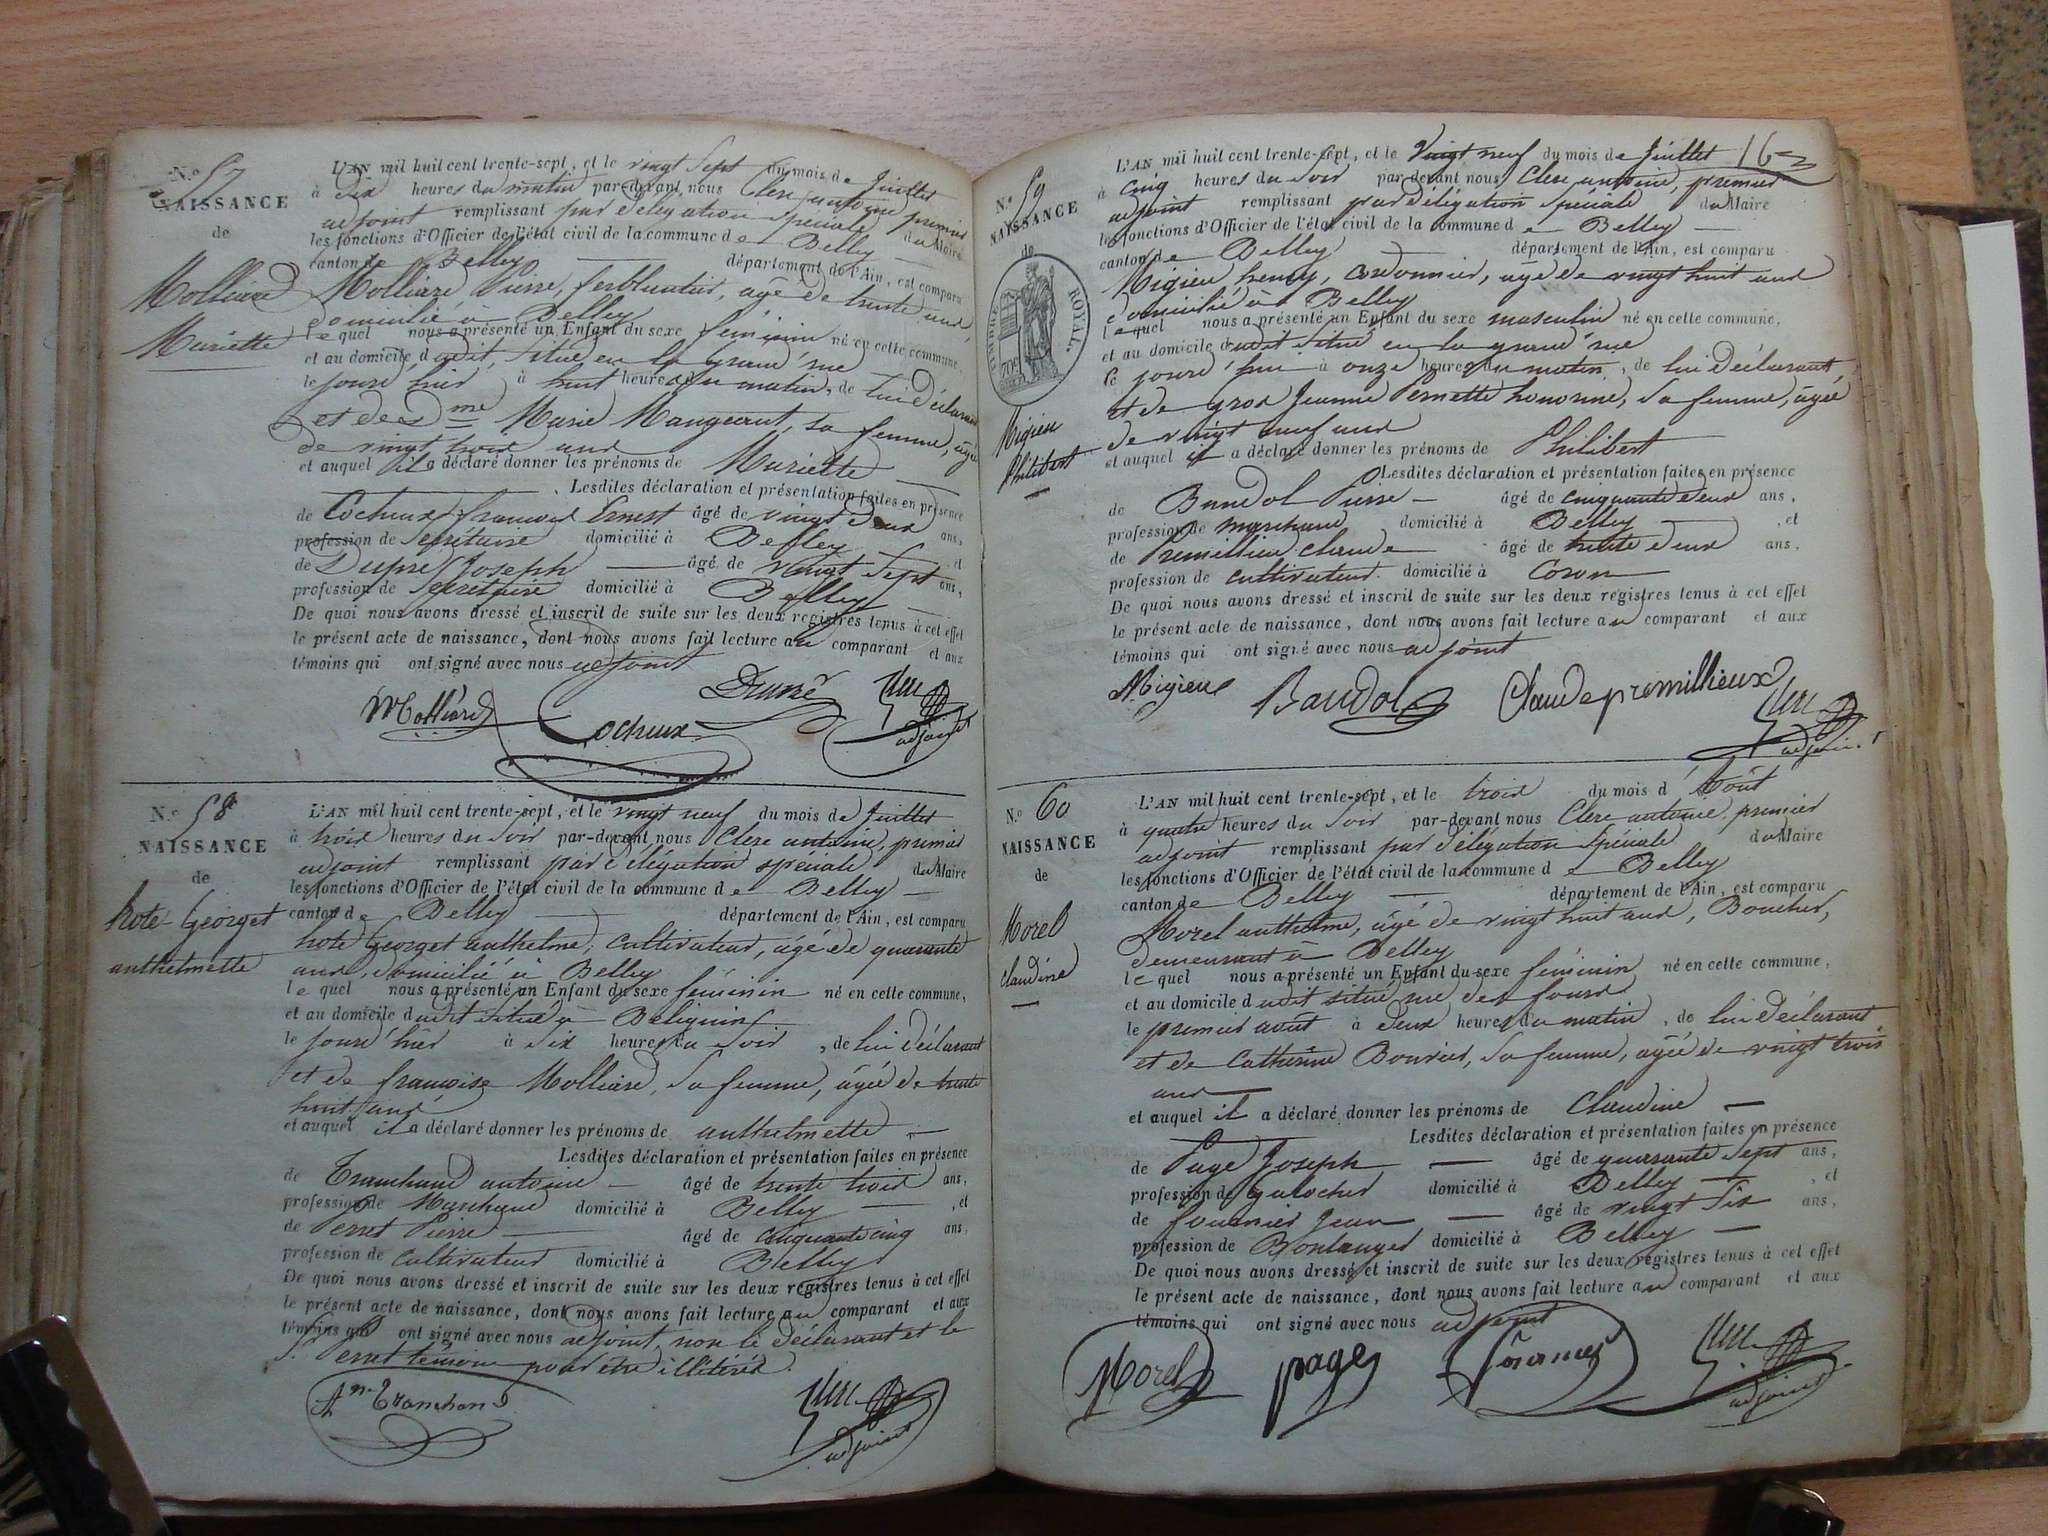 N.o 57
NAISSANCE
de
Molliard
Mariette
L'AN mil huit cent trente-sept, et le vingt sept du mois de Juillet
à dix heures du matin par-devant nous Clerc antoine premier
adjoint remplissant par délégation spéciale du Maire
les fonctions d'Officier de l'état civil de la commune de Belley
canton de Belley département de l'Ain, est comparu
Molliard, Pierre, ferblantier, âgé de trente ans,
domicilié à Belley
lequel nous a présenté un Enfant du sexe féminin né en cette commune,
et au domicile dudit, situé en la grand'rue
le jourd'hier à huit heures du matin, de lui déclarant
et de dme Marie Mangeunt, sa femme, âgée
de vingt trois ans
et auquel il a déclaré donner les prénoms de Mariette
Lesdites déclaration et présentation faites en présence
de Cocheux françois Ernest âgé de vingt deux ans,
profession de Secrétaire domicilié à Belley et
de Dupré Joseph âgé de vingt sept ans,
profession de Secrétaire domicilié à Belley
De quoi nous avons dressé et inscrit de suite sur les deux registres tenus à cet effet
le présent acte de naissance, dont nous avons fait lecture au comparant et aux
témoins qui ont signé avec nous adjoint
Molliard Cocheux Dupré Clerc
adjoint
N.o 58
NAISSANCE
de
hote-Georget
anthelmette
L'AN mil huit cent trente-sept, et le vingt neuf du mois de Juillet
à trois heures du soir par-devant nous Clerc antoine, premier
adjoint remplissant par délégation spéciale du Maire
les fonctions d'Officier de l'état civil de la commune de Belley
canton de Belley département de l'Ain, est comparu
hote Georget anthelme, cultivateur, âgé de quarante
ans, domicilié à Belley
lequel nous a présenté un Enfant du sexe féminin né en cette commune,
et au domicile dudit situé à Béligneux
le jourd'hier à six heures du soir, de lui déclarant
et de françoise Molliard, sa femme, âgée de trente
huit ans
et auquel il a déclaré donner les prénoms de anthelmette
Lesdites déclaration et présentation faites en présence
de Tranchand antoine âgé de trente trois ans,
profession de Marchand domicilié à Belley, et
de Perret Pierre âgé de cinquante cinq ans,
profession de cultivateur domicilié à Belley
De quoi nous avons dressé et inscrit de suite sur les deux registres tenus à cet effet
le présent acte de naissance, dont nous avons fait lecture au comparant et aux
témoins qui ont signé avec nous adjoint, non le déclarant et le
S. Perret témoin pour être illitérés.
Ane Tranchand Clerc
adjoint
16
N.o 59
NAISSANCE
de
TIMBRE ROYAL.
70c
Migieu
Philibert
L'AN mil huit cent trente-sept, et le vingt neuf du mois de Juillet
à cinq heures du soir par-devant nous Clerc antoine, premier
adjoint remplissant par délégation spéciale du Maire
les fonctions d'Officier de l'état civil de la commune de Belley
canton de Belley département de l'Ain, est comparu
Migieu henry, cordonnier, âgé de vingt huit ans
domicilié à Belley
lequel nous a présenté un Enfant du sexe masculin né en cette commune,
et au domicile dudit situé en la grand'rue
le jourd'hui à onze heures du matin, de lui déclarant
et de gros Jeanne Pernette honorine, sa femme, âgée
de vingt neuf ans
et auquel il a déclaré donner les prénoms de Philibert
Lesdites déclaration et présentation faites en présence
de Baudol Pierre âgé de cinquante deux ans,
profession de marchand domicilié à Belley, et
de Premillieu claude âgé de trente deux ans,
profession de cultivateur domicilié à Coron
De quoi nous avons dressé et inscrit de suite sur les deux registres tenus à cet effet
le présent acte de naissance, dont nous avons fait lecture au comparant et aux
témoins qui ont signé avec nous adjoint
Migieu Baudol Claude premillieux Clerc
adjoint
N.o 60
NAISSANCE
de
Morel
claudine
L'AN mil huit cent trente-sept, et le trois du mois d'Août
à quatre heures du soir par-devant nous Clerc antoine, premier
adjoint remplissant par délégation spéciale du Maire
les fonctions d'Officier de l'état civil de la commune de Belley
canton de Belley département de l'Ain, est comparu
Morel anthelme, âgé de vingt huit ans, Boucher,
demeurant à Belley
lequel nous a présenté un Enfant du sexe féminin né en cette commune,
et au domicile dudit situé rue des fours
le premier août à deux heures du matin, de lui déclarant
et de Catherine Bouvier, sa femme, âgée de vingt trois
ans
et auquel il a déclaré donner les prénoms de Claudine
Lesdites déclaration et présentation faites en présence
de Page Joseph âgé de quarante sept ans,
profession de Galocher domicilié à Belley, et
de fournier Jean âgé de vingt six ans,
profession de Boulanger domicilié à Belley
De quoi nous avons dressé et inscrit de suite sur les deux registres tenus à cet effet
le présent acte de naissance, dont nous avons fait lecture au comparant et aux
témoins qui ont signé avec nous adjoint
Morel page fournier Clerc
adjoint